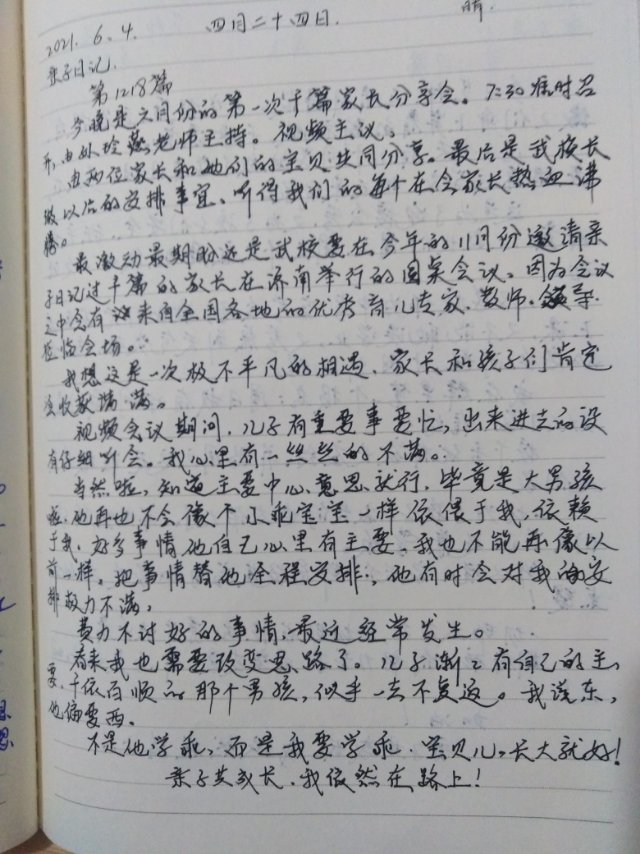 2021.6.4. 四月二十四日. 晴.
亲子日记.
第1218篇
今晚是六月份的第一次千篇家长分享会。7:30准时召
开,由孙玲燕老师主持。视频主议。
由两位家长和她们的宝贝共同分享。最后是武校长
做以后的安排事宜、听得我们的每个在会家长热血沸
腾。
最激动最期盼还是武校要在今年的11月份邀请亲
子日记过千篇的家长在济南举行的圆桌会议。因为会议
之中会有 来自全国各地的优秀育儿专家、教师、领导
莅临会场。
我想这是一次极不平凡的相遇、家长和孩子们肯定
会收获满满。
视频会议期间,儿子有重要事要忙,出来进去的没
有仔细听会。我心里有一丝丝的不满。
当然啦,知道主要中心意思就行,毕竟是大男孩
啦,他再也不会像个小乖宝宝一样依偎于我,依赖
于我,好多事情他自己心里有主要、我也不能再像以
前一样。把事情替他全程安排,他有时会对我的安
排极力不满。
费力不讨好的事情,最近经常发生。
看来我也需要改变思路了。儿子渐渐有自己的主
要,千依百顺的那个男孩,似乎一去不复返。我说东,
他偏要西。
不是他学乖,而是我要学乖.宝贝儿,长大就好!
亲子共成长、我依然在路上!